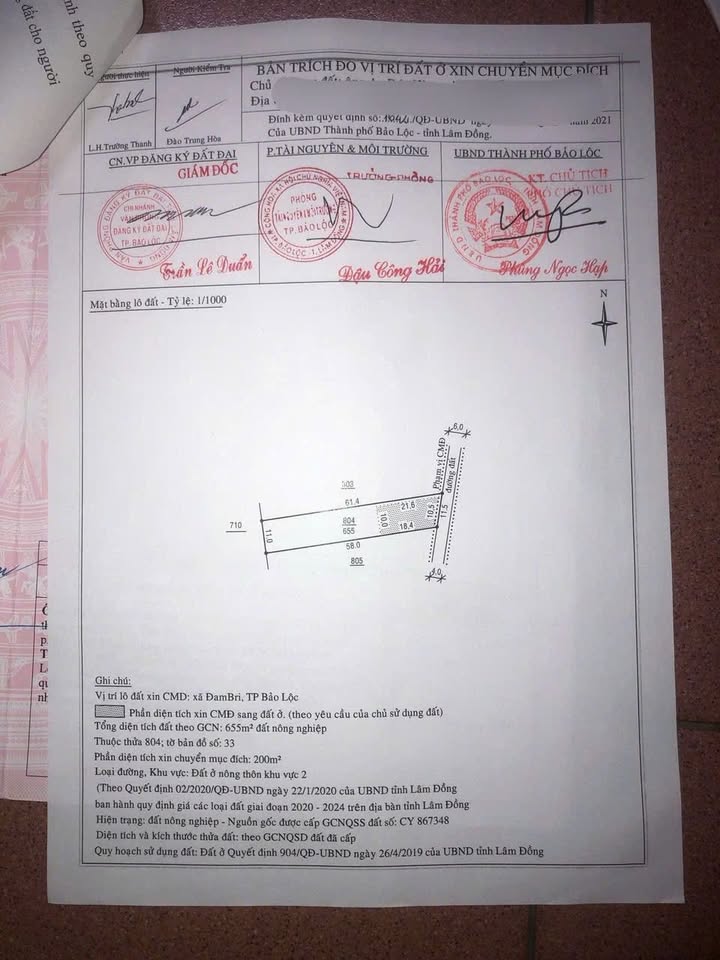 nh theo quy
đất cho người
Người thực hiện
Người Kiểm Tra
L.H.Trường Thanh
Đào Trung Hòa
BẢN TRÍCH ĐO VỊ TRÍ ĐẤT Ở XIN CHUYỂN MỤC ĐÍCH
Chủ
Địa
Đính kèm quyết định số: /QĐ-UBND ngày năm 2021
Của UBND Thành phố Bảo Lộc - tỉnh Lâm Đồng.
CN.VP ĐĂNG KÝ ĐẤT ĐAI
GIÁM ĐỐC
CHI NHÁNH
ĐĂNG KÝ ĐẤT ĐAI
TP.BẢO LỘC
Trần Lê Duẩn
P.TÀI NGUYÊN & MÔI TRƯỜNG
TRƯỞNG PHÒNG
PHÒNG
TÀI NGUYÊN MÔI TRƯỜNG
TP.BẢO LỘC
Đậu Công Hải
UBND THÀNH PHỐ BẢO LỘC
KT. CHỦ TỊCH
PHÓ CHỦ TỊCH
Phùng Ngọc Hạp
Mặt bằng lô đất - Tỷ lệ: 1/1000
N
6,0
Phạm vi CMĐ
đường đất
303
61.4
710
11.0
804
655
10.0
21,6
18,4
10,5
11.5
58.0
805
4.0
Ghi chú:
Vị trí lô đất xin CMD: xã ĐamBri, TP Bảo Lộc
Phần diện tích xin CMĐ sang đất ở. (theo yêu cầu của chủ sử dụng đất)
Tổng diện tích đất theo GCN: 655m² đất nông nghiệp
Thuộc thửa 804; tờ bản đồ số: 33
Phần diện tích xin chuyển mục đích: 200m²
Loại đường, Khu vực: Đất ở nông thôn khu vực 2
(Theo Quyết định 02/2020/QĐ-UBND ngày 22/1/2020 của UBND tỉnh Lâm Đồng
ban hành quy định giá các loại đất giai đoạn 2020 - 2024 trên địa bàn tỉnh Lâm Đồng
Hiện trạng: đất nông nghiệp - Nguồn gốc được cấp GCNQSS đất số: CY 867348
Diện tích và kích thước thửa đất: theo GCNQSD đất đã cấp
Quy hoạch sử dụng đất: Đất ở Quyết định 904/QĐ-UBND ngày 26/4/2019 của UBND tỉnh Lâm Đồng